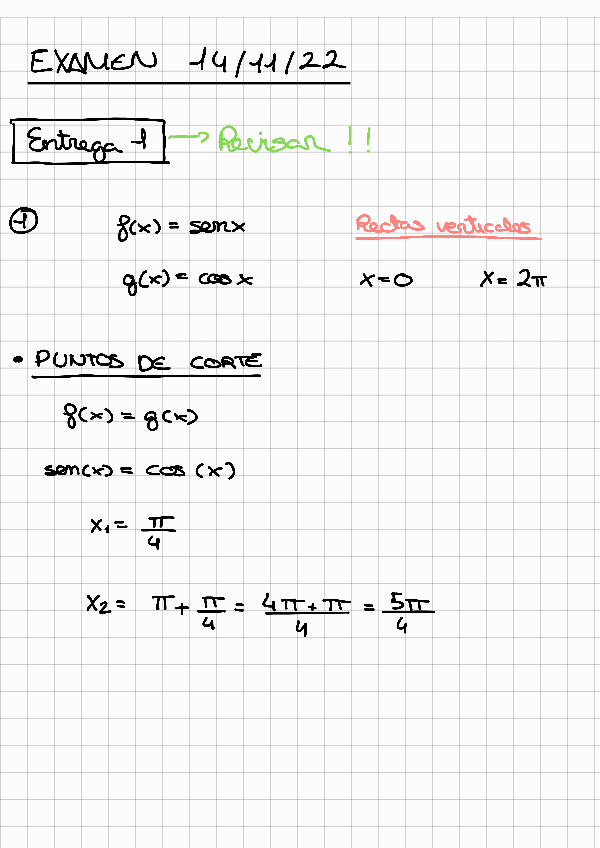 EXAMEN 14/11/22
Entrega 1 → Revisar !!
① f(x) = senx Rectas verticales
g(x) = cos x x = 0 x = 2π
• PUNTOS DE CORTE
f(x) = g(x)
sen(x) = cos (x)
x₁ = π/4
x₂ = π + π/4 = 4π + π/4 = 5π/4